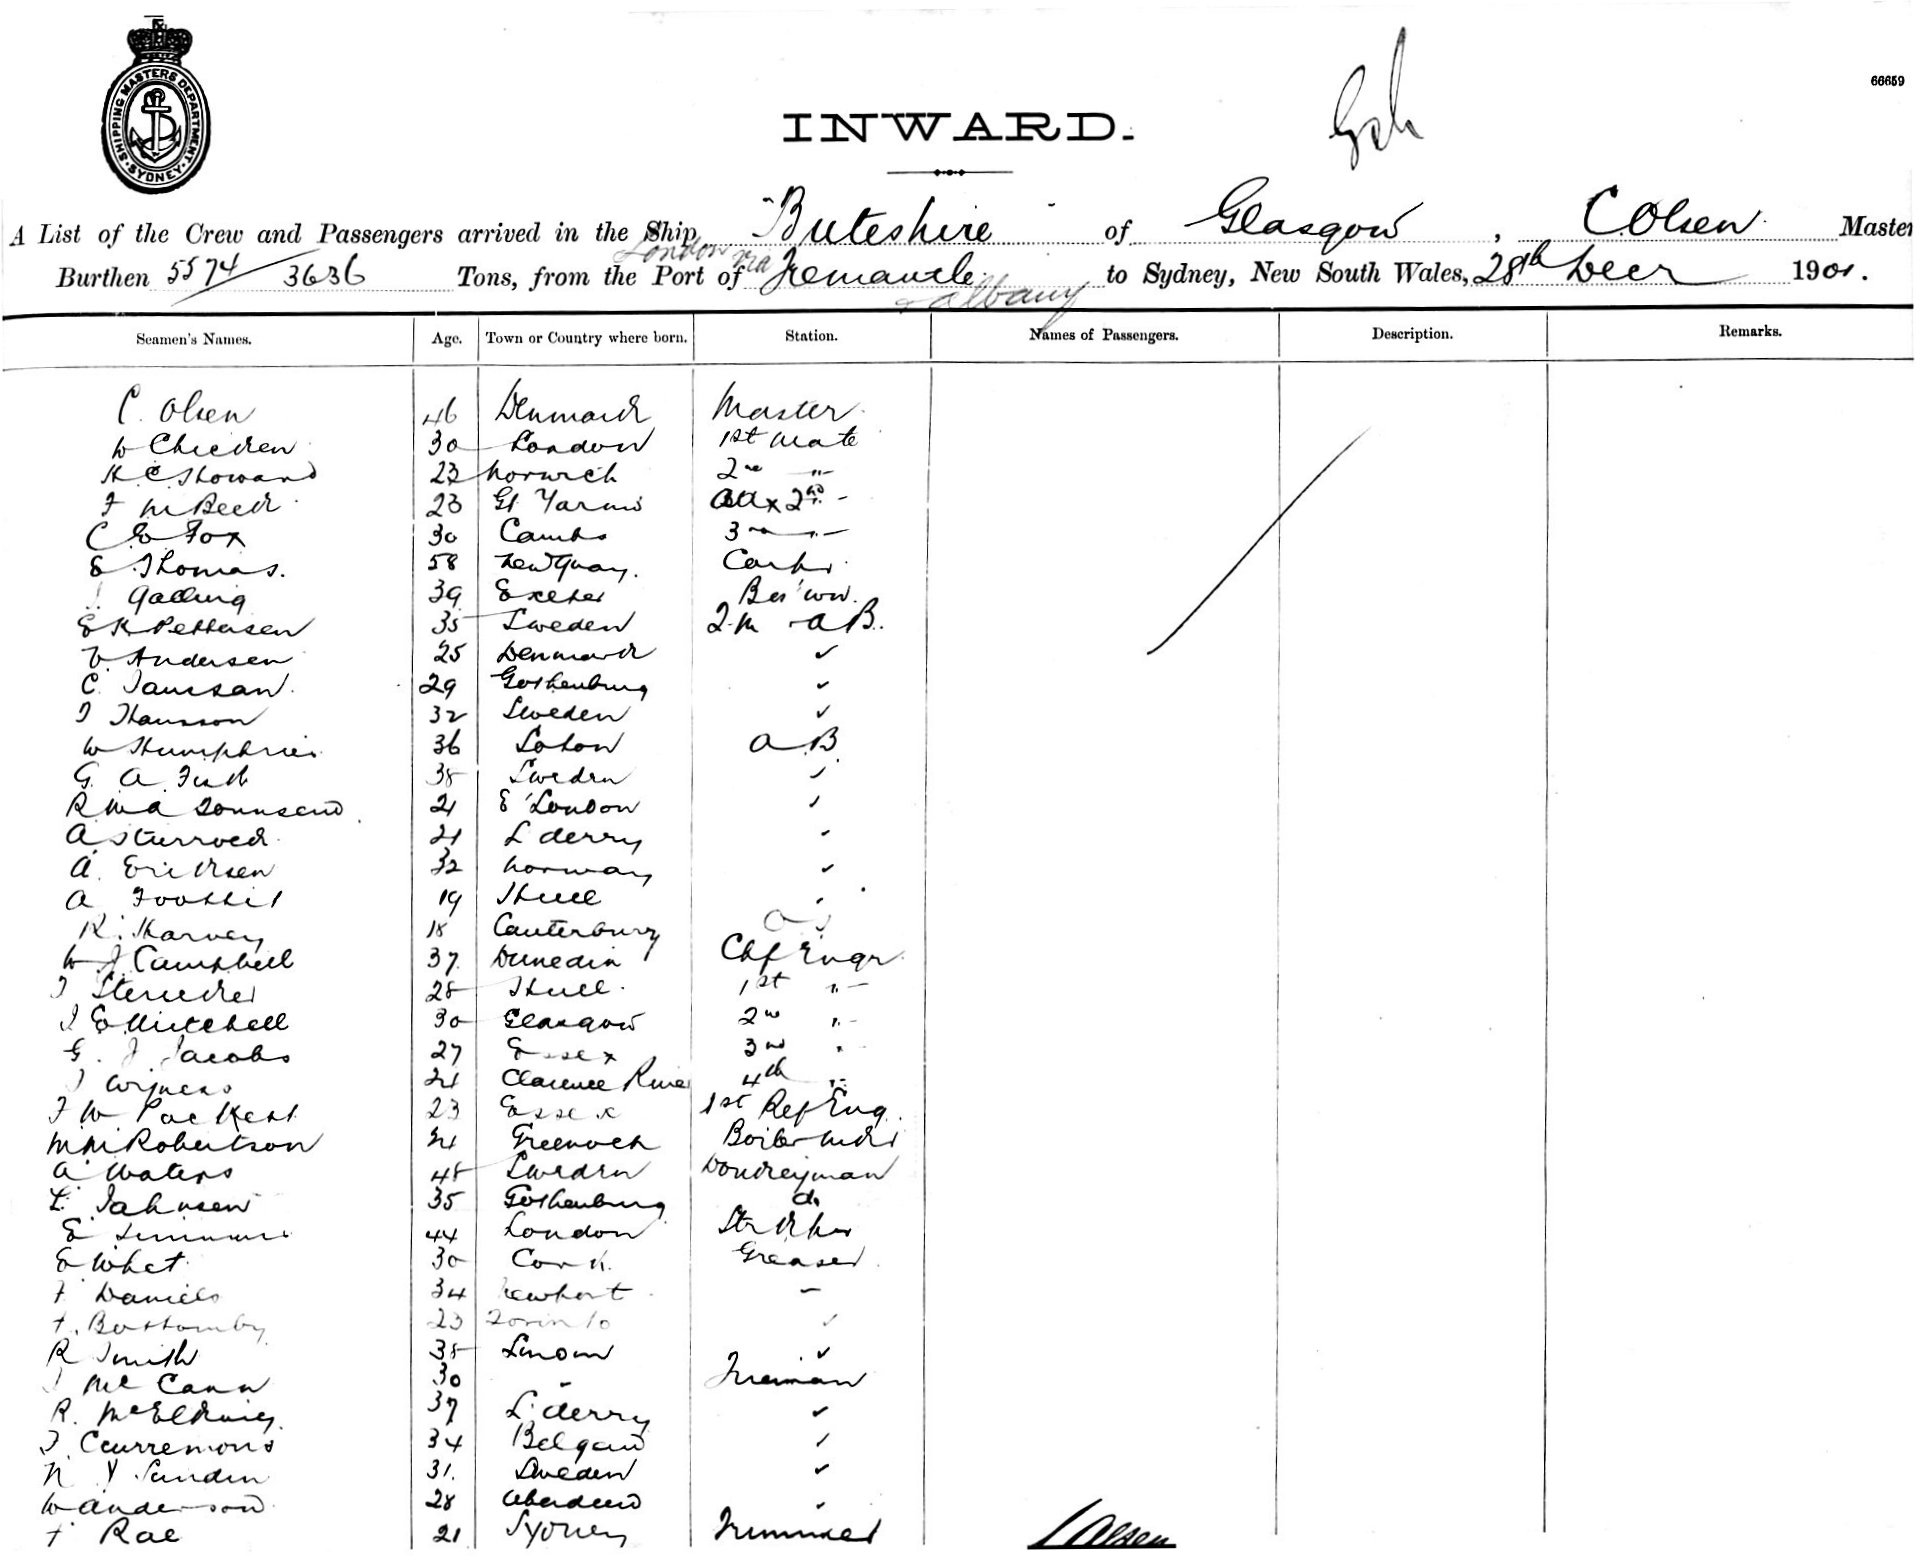 SHIPPING MASTERS DEPARTMENT · SYDNEY ·
66659
INWARD.
A List of the Crew and Passengers arrived in the Ship "Buteshire" of Glasgow, C Olsen Master
London via
Burthen 5574 / 3636 Tons, from the Port of Fremantle to Sydney, New South Wales, 28th Decr 1901.
& Albany
Seamen's Names. Age. Town or Country where born. Station. Names of Passengers. Description. Remarks.
C. Olsen 46 Denmark Master
W Chicken 30 London 1st Mate
H C Howard 23 Norwich 2nd "
F M Beck 23 Gt Yarm's 2nd "
C E Fox 30 Cambs 3rd "
E Thomas. 58 Newquay. Carpr
39 Exeter Bos'wn.
E K Pettersen 35 Sweden Q.M A B.
V. Andersen 25 Denmark ✓
C. 29 Gothenburg ✓
J Hansson 32 Sweden ✓
W Humphries 36 A B
G. A. 38 Sweden ✓
R W A Townsend 21 E London ✓
A Sturrock 21 L derry ✓
A. Eriksen 32 Norway ✓
A 19 Hull
R. Harvey 18 Canterbury O S
W J Campbell 37 Dunedin Chf Engr
J 28 Hull. 1st "
J E Mitchell 30 Glasgow 2nd "
G. J Jacobs 27 Essex 3rd "
J 24 Clarence River 4th "
F W 23 Essex 1st Ref Eng.
M M Robertson 21 Greenock Boiler Mkr
A Waters 48 Sweden Donkeyman
L. Johnsen 35 Gothenburg do
E 44 London
E What 30 Cork. Greaser
F Daniels 34 Newport
F. Bottomby 23 Toronto ✓
R Smith 38 ✓
J McCann 30 " Fireman
R. 37 L. derry ✓
J. 34 ✓
N 31. Sweden ✓
W Anderson 28 Aberdeen ✓
F Rae 21 Sydney Trimmer
C Olsen